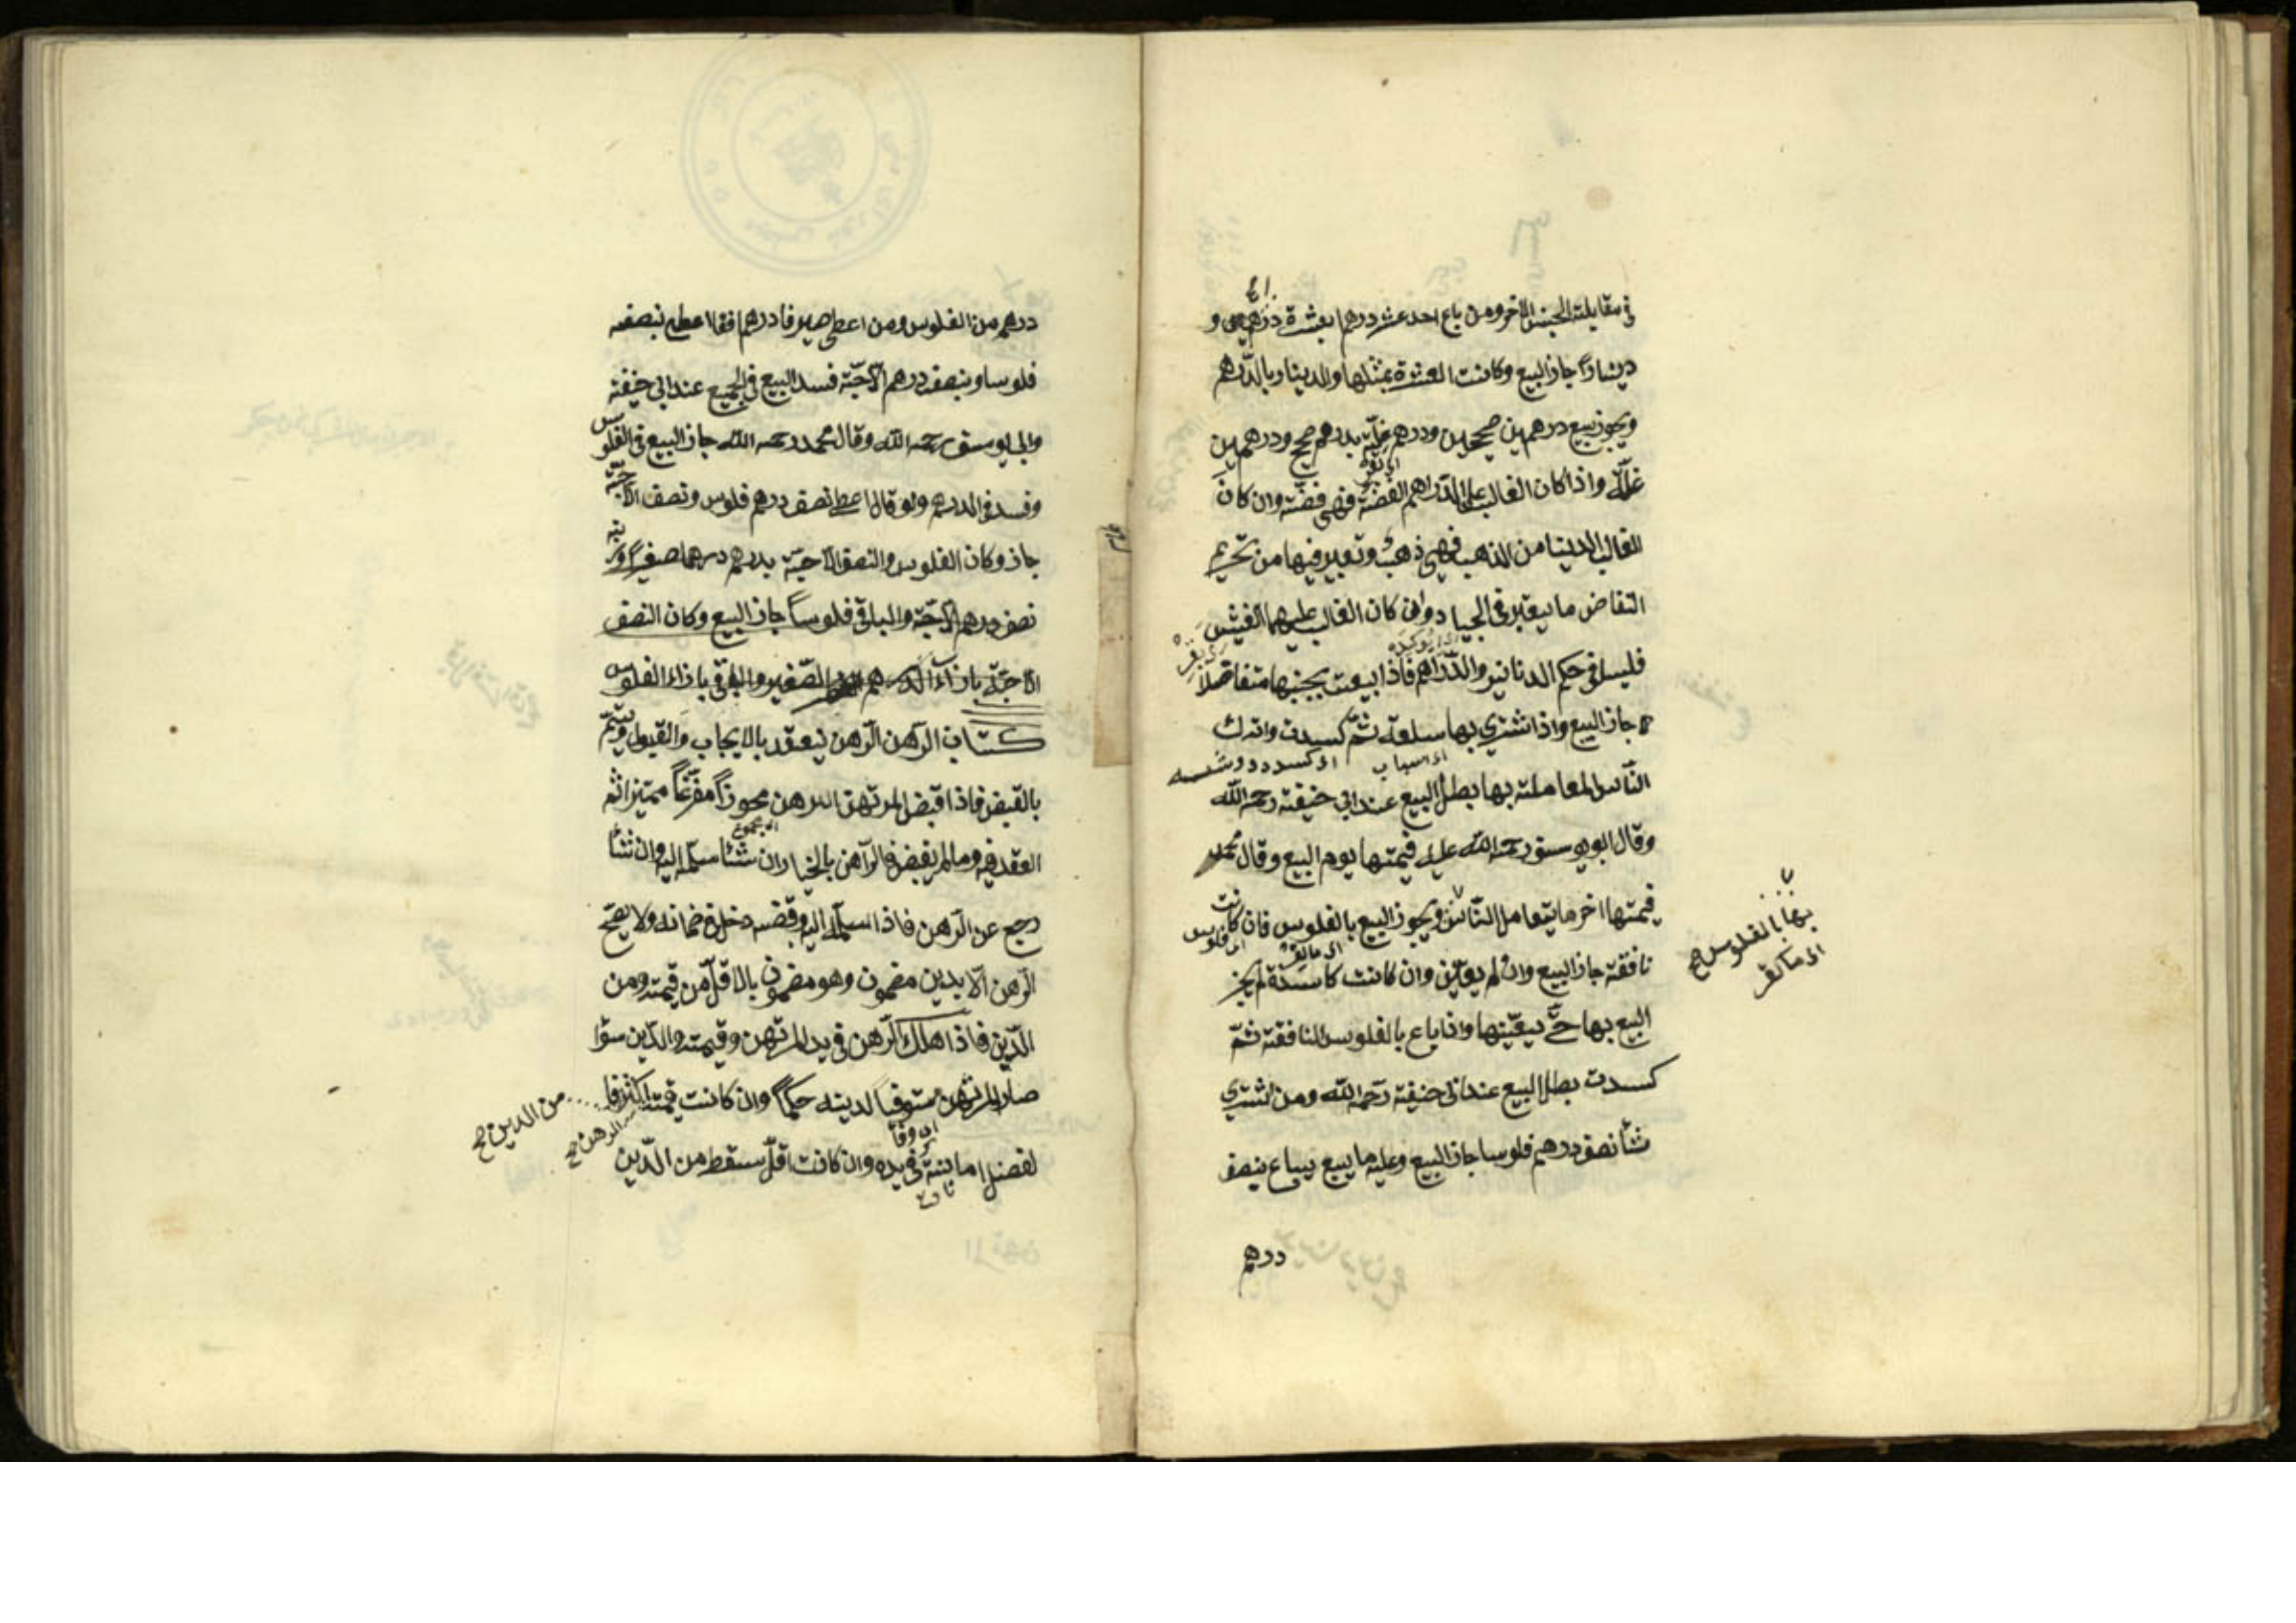 في مقابلة الجنس الاخر ومن باع احد عشر درهما بعشرة دراهم و
دينارا جاز البيع وكانت العشرة بمثلها والدينار بالدرهم
ويجوز بيع درهمين صحيحين ودرهم غلّة بدرهم صحيح ودرهمين
غلّة واذا كان الغالب على الدراهم الفضّة فهى فضّة وان كان
الغالب الدينا من الذهب فهي ذهب وتعبير فيها من تحريم
التفاضل ما يعتبر في الجياد وان كان الغالب عليهما الغش
فليسا في حكم الدنانير والدّراهم فاذا بيعت بجنسها متفاضلا
جاز البيع واذا اشترى بها سلعة ثمّ كسدت وترك
النّاس المعاملة بها بطل البيع عند ابي حنيفة رحمه الله
وقال ابو يوسف رحمه الله عليه قيمتها يوم البيع وقال محمد
قيمتها اخر ما يتعامل النّاس ويجوز البيع بالفلوس فان كانت
نافقة جاز البيع وان لم يعيّن وان كانت كاسدة لم يجز
بها بالفلوس صح
البيع بها حتّى يعيّنها واذا باع بالفلوس النافقة ثمّ
كسدت بطل البيع عند ابي حنيفة رحمه الله ومن اشترى
شأ نصف درهم فلوسا جاز البيع وعليه ما يبيع يباع بنصف
درهم
درهم من الفلوس ومن اعطى صيرفا درهما فقا اعطى بنصفه
فلوسا وبنصف درهم الّا حبّة فسد البيع في الجميع عند ابي حنيفة
وابي يوسف رحمه الله وقال محمد رحمه الله جاز البيع في الفلوس
وفسد في الدرهم ولو قال اعطى نصف درهم فلوس ونصف الّا حبّة
جاز وكان الفلوس والنصف الّا حبّة بدرهم درهما صغيرا وزنه
نصف درهم الّا حبّة والباقي فلوسا جاز البيع وكان النصف
الّا حبّة بازاء الدرهم الصّغير والباقي بازاء الفلوس
كتاب الرّهن الرّهن ينعقد بالايجاب والقبول ويتمّ
بالقبض فاذا قبض المرتهن الرهن محوزا مفرّغا مميّزا تم
العقد فيه وما لم يقبض فالرّاهن بالخيار ان شأ سلّمه اليه وان شأ
رجع عن الرّهن فاذا سلّمه اليه وقبضه دخل في ضمانه ولا يصّح
الرّهن الّا بدين مضمون وهو مضمون بالاقلّ من قيمته ومن
الدّين فاذا هلك الرّهن في يد المرتهن وقيمته والدّين سوا
صار المرتهن مستوفيا لدينه حكما وان كانت قيمته اكثر فا
من الدين صح
الرهن صح
لفضل امانة في يده وان كانت اقلّ سقط من الدّين